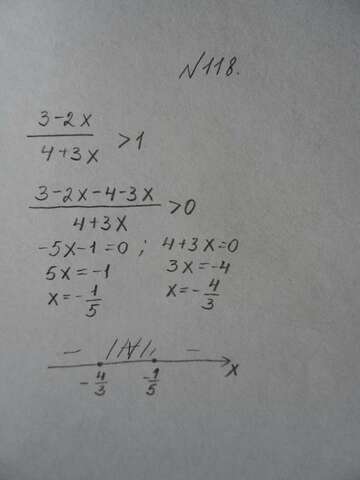 №118.
(3-2x)/(4+3x) >1
(3-2x-4-3x)/(4+3x) >0
-5x-1=0 ; 4+3x=0
5x=-1 3x=-4
x=-1/5 x=-4/3
- + -
-4/3 -1/5 x